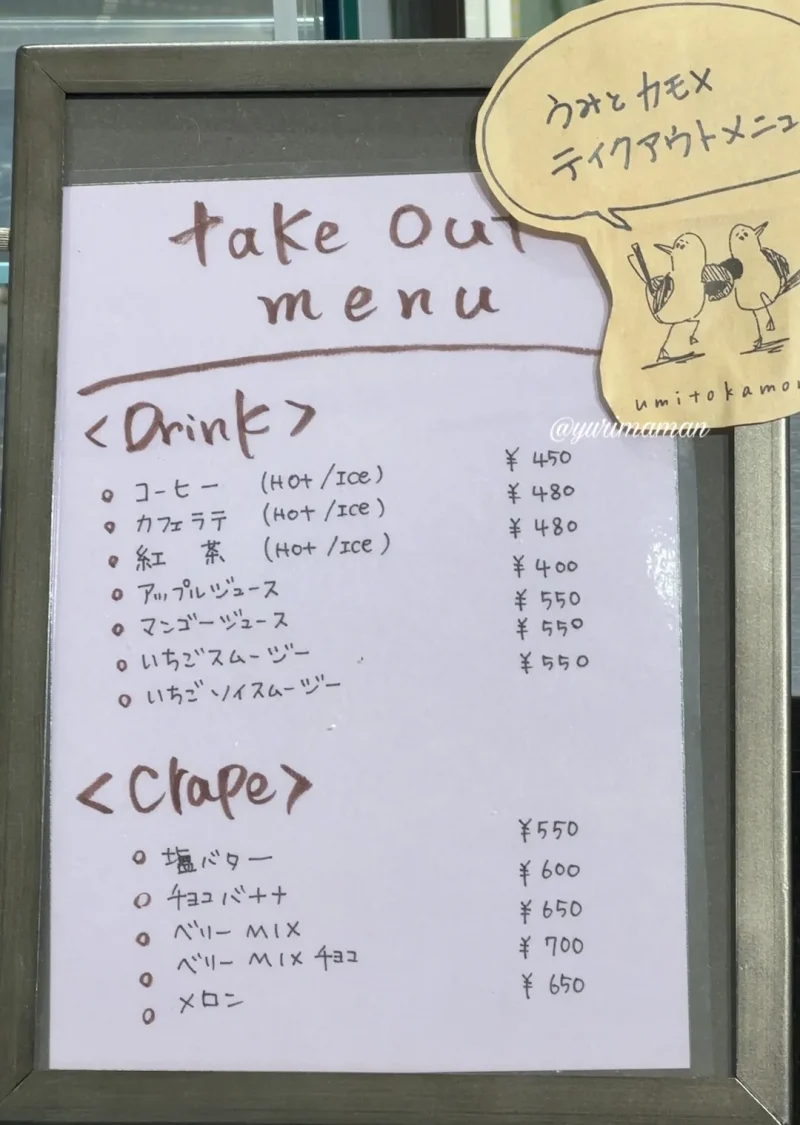 うみとカモメ
テイクアウトメニュ
take out
menu
@yurimaman
umitokamo
<Drink>
コーヒー (Hot/Ice) ¥450
カフェラテ (Hot/Ice) ¥480
紅 茶 (Hot/Ice) ¥480
アップルジュース ¥400
マンゴージュース ¥550
いちごスムージー ¥550
いちごソイスムージー ¥550
<Crape>
塩バター ¥550
チョコバナナ ¥600
ベリー MIX ¥650
ベリー MIX チョコ ¥700
メロン ¥650